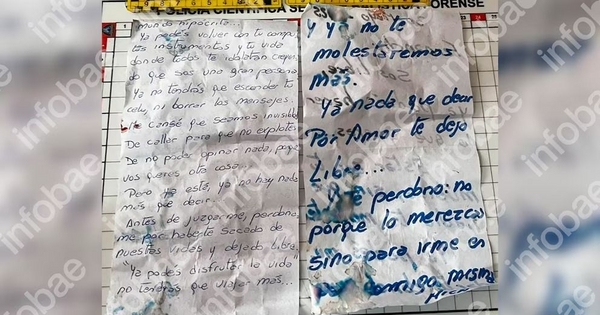 ORENSE
mundo hipócrita...
Ya podés volver con tu
instrumentos y tu vida
donde todos te idolatran
do que sos una gran persona.
Ya no tendrás que esconder tu
celu, ni borrar los mensajes.
Me cansé que seamos invisibles
De callar para que no explotes
De no poder opinar nada, porque
vos querés otra cosa...
Pero ya está, ya no hay nada
más que decir.
Antes de juzgarme, perdona
me por haberte sacado de
nuestras vidas y dejado libre.
"Ya podés disfrutar la vida"
no tendrás que viajar mas...
y ya no te
molestaremos
más.
Ya nada que decir
Por Amor te dejo
Libre...
perdono: no
porque lo merezcas
sino para irme en
paz conmigo misma
infobae
infobae
infobae
infobae
infobae
infobae